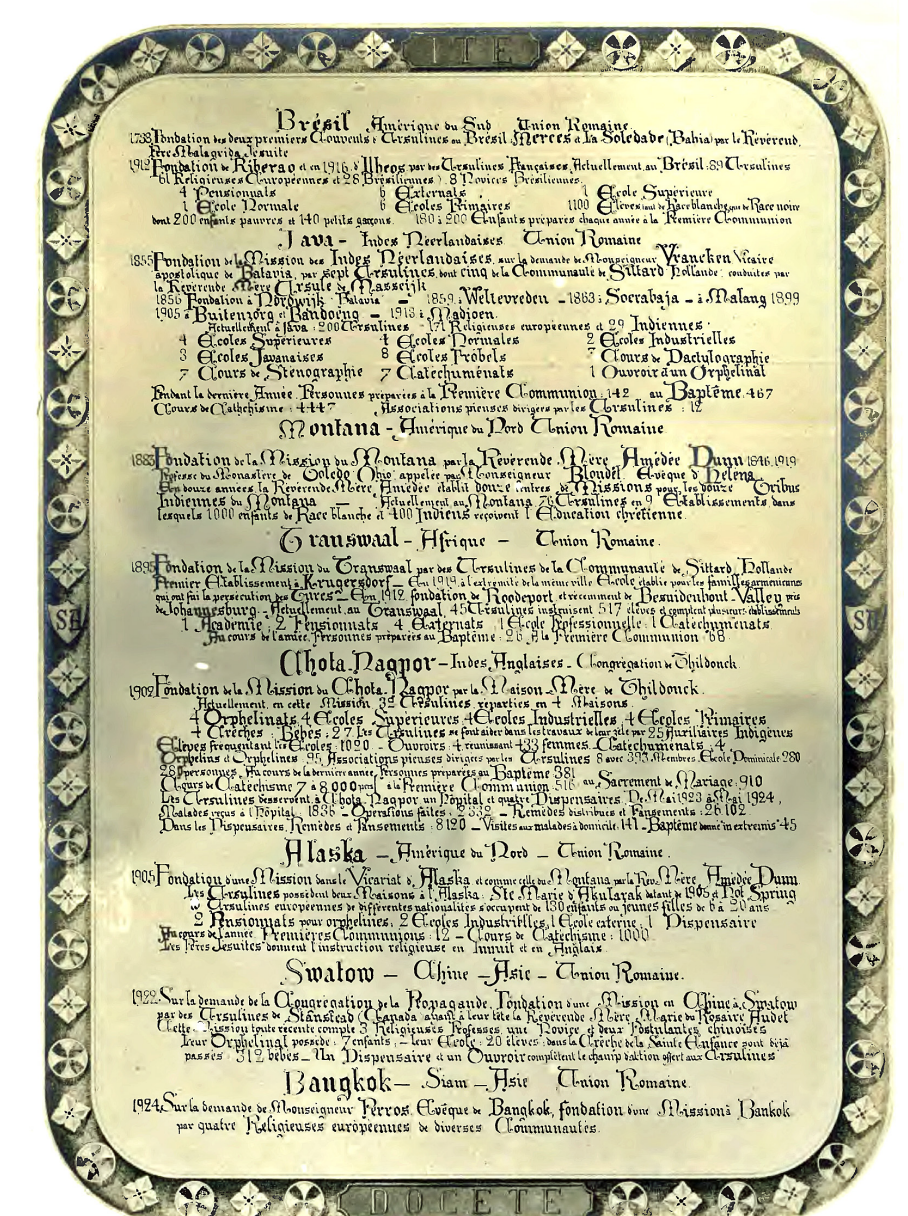 ITE
Brésil Amérique du Sud Union Romaine.
1738 Fondation des deux premiers Couvents d'Ursulines au Brésil Merces et La Soledade (Bahia) par le Révérend
Père Malagrida Jésuite
1912 Fondation de Riberao et en 1916, d'Ilheos par des Ursulines Françaises, Actuellement, au Brésil : 89 Ursulines
61 Religieuses Européennes et 28 Brésiliennes). 8 Novices Brésiliennes.
4 Pensionnats 6 Externats 1 Ecole Supérieure
1 Ecole Normale 6 Ecoles Primaires 1100 Elèves tant de Race blanche, que de Race noire
dont 200 enfants pauvres et 140 petits garçons. 180 à 200 Enfants préparés chaque année à la Première Communion
Java - Indes Néerlandaises Union Romaine
1855 Fondation de la Mission des Indes Néerlandaises, sur la demande de Monseigneur Vrancken Vicaire
apostolique de Batavia, par sept Ursulines, dont cinq de la Communauté de Sittard Hollande : conduites par
la Révérende Mère Ursule de Masseijk
1856 Fondation à Nordwijk Batavia — 1859 à Weltevreden — 1863 à Soerabaja — à Malang 1899
1905 à Buitenzorg et Bandoëng — 1913 à Madjoen.
Actuellement à Java : 200 Ursulines - 171 Religieuses européennes et 29 Indiennes.
4 Ecoles Supérieures 4 Ecoles Normales 2 Ecoles Industrielles
3 Ecoles Javanaises 8 Ecoles Fröbels 7 Cours de Dactylographie
7 Cours de Sténographie 7 Catéchuménats 1 Ouvroir d'un Orphelinat
Pendant la dernière Année Personnes préparées à la Première Communion : 142 au Baptême 467
Cours de Cathéchisme : 4447 Associations pieuses dirigées par les Ursulines : 12
Montana - Amérique du Nord Union Romaine
1883 Fondation de la Mission du Montana par la Révérende Mère Amédée Dunn 1846,1919
Professe du Monastère de Toledo Ohio appelée par Monseigneur Blondel Evêque d'Helena
En douze années la Révérende Mère Amédée établit douze centres de Missions pour les douze Tribus
Indiennes du Montana — Actuellement au Montana 75 Ursulines en 9 Etablissements dans
lesquels 1000 enfants de Race blanche et 400 Indiens reçoivent l'Education chrétienne.
Transwaal - Afrique — Union Romaine.
1895 Fondation de la Mission du Transwaal par des Ursulines de la Communauté de Sittard, Hollande
Premier Etablissement à Krugersdorf — En 1919, à l'extrémité de la même ville Ecole établie pour les familles arméniennes
qui ont fui la persécution des Turcs — En 1912 fondation de Roodeport, et récemment de Besuidenhout Valley près
de Johannesburg - Actuellement, au Transwaal, 45 Ursulines instruisent 517 élèves et comptent plusieurs établissements
1 Académie, 2 Pensionnats, 4 Externats 1 Ecole Professionnelle 1 Catéchuménats
Au cours de l'année, Personnes préparées au Baptême : 26 A la Première Communion 68
Chota-Nagpor - Indes Anglaises - Congrégation de Thildonck
1902 Fondation de la Mission du Chota-Nagpor par la Maison-Mère de Thildonck.
Actuellement, en cette Mission 32 Ursulines, réparties en 4 Maisons.
4 Orphelinats, 4 Ecoles Supérieures, 4 Ecoles Industrielles, 4 Ecoles Primaires
4 Crèches : Bébés : 27 Les Ursulines se font aider dans les travaux de leur zèle par 25 Auxiliaires Indigènes
Elèves fréquentant les Ecoles : 1020 - Ouvroirs : 4, réunissant 433 femmes. Catéchuménats : 4
Orphelins et Orphelines 95, Associations pieuses dirigées par les Ursulines 8 avec 393 Membres. Ecole Dominicale 280
280 personnes, Au cours de la dernière année, Personnes préparées au Baptême 381
Cours de Catéchisme 7 à 8000 à la Première Communion 516 au Sacrement de Mariage : 910
Les Ursulines desservent à Chota-Nagpor un Hôpital et quatre Dispensaires. De Mai 1923 à Mai 1924,
Malades reçus à l'Hôpital : 1836 - Opérations faites : 2332 - Remèdes distribués et Pansements : 26102
Dans les Dispensaires, Remèdes et Pansements : 8120 - Visites aux malades à domicile : 141 - Baptême donné "in extremis" 45
Alaska - Amérique du Nord - Union Romaine.
1905 Fondation d'une Mission dans le Vicariat d'Alaska et comme celle du Montana par la Rév. Mère, Amédée Dunn
Les Ursulines possèdent deux Maisons à l'Alaska : Ste Marie d'Akularak datant de 1905 et Hot Spring
Ursulines européennes de différentes nationalités s'occupent de 130 enfants ou jeunes filles de 6 à 20 ans
2 Pensionnats pour orphelines, 2 Ecoles Industrielles, 1 Ecole externe, 1 Dispensaire
Au cours de l'année Premières Communions : 12 - Cours de Catéchisme : 1000
Les Pères Jésuites donnent l'instruction religieuse en Innuit et en Anglais
Swatow — Chine — Asie - Union Romaine.
1922 Sur la demande de la Congrégation de la Propagande, Fondation d'une Mission en Chine à Swatow
par des Ursulines de Stanstead (Canada ayant à leur tête la Révérende Mère Marie du Rosaire Audet
Cette Mission toute récente compte 3 Religieuses Professes, une Novice et deux Postulantes chinoises
Leur Orphelinat possède : 7 enfants ; - leur Ecole : 20 élèves ; dans la Crèche de la Sainte Enfance sont déjà
passés 312 bébés - Un Dispensaire et un Ouvroir complètent le champ d'action offert aux Ursulines
Bangkok — Siam — Asie Union Romaine.
1924 Sur la demande de Monseigneur Perros, Evêque de Bangkok, fondation d'une Mission à Bankok
par quatre Religieuses européennes de diverses Communautés.
DOCETE